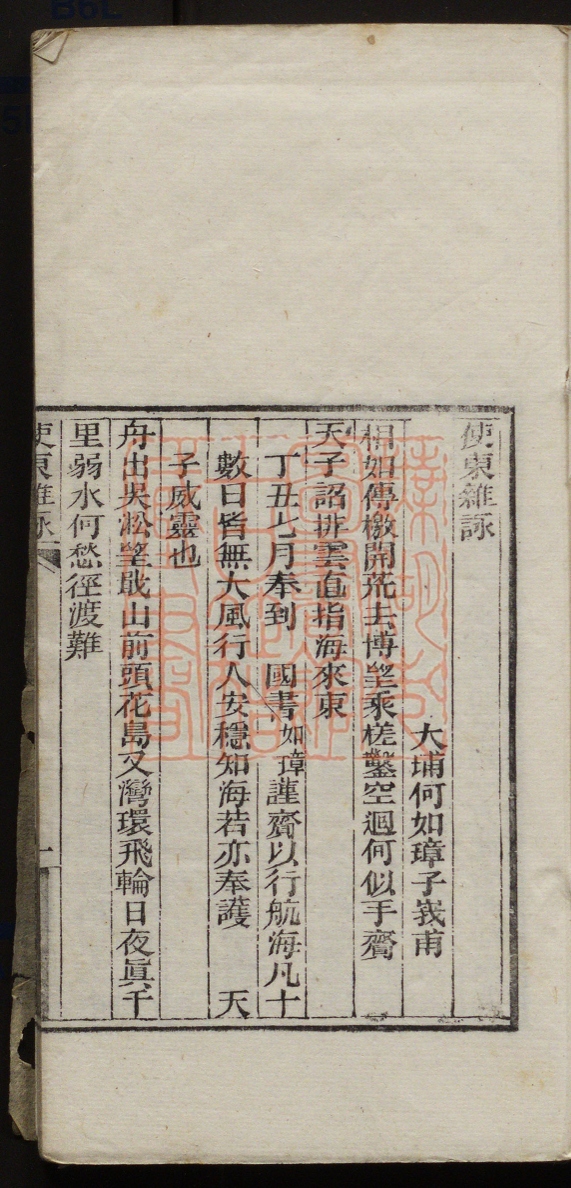 使東雜詠
大埔何如璋子峩甫
相如傳檄開荒去博望乘槎鑿空廻何似手齎
天子詔排雲直指海東來
丁丑七月奉到　國書如璋謹齎以行航海凡十
數日皆無大風行人安穩知海若亦奉護　天
子威靈也
舟出吳淞望戢山前頭花島又灣環飛輪日夜眞千
里弱水何愁徑渡難
使東雜詠
一